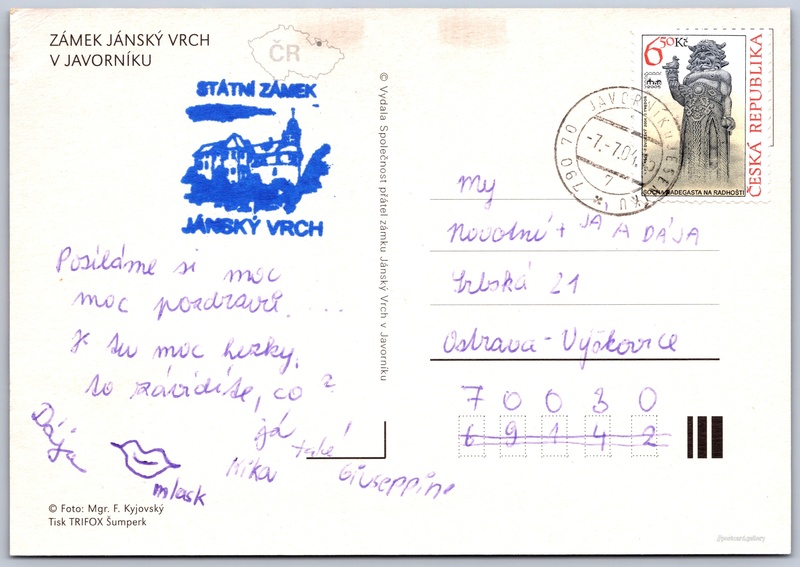 ZÁMEK JÁNSKÝ VRCH
V JAVORNÍKU
ČR
STÁTNÍ ZÁMEK
JÁNSKÝ VRCH
Posíláme si moc
moc pozdravů....
Je tu moc hezky,
to závidíte, co?
já také!
Dája
mlask
Nika
Giuseppine
© Foto: Mgr. F. Kyjovský
Tisk TRIFOX Šumperk
© Vydala Společnost přátel zámku Jánský Vrch v Javorníku
6,50 Kč
ČESKÁ REPUBLIKA
SOCHA RADEGASTA NA RADHOŠTI
790 70
-7.-7.04
My
Novotní + JA A DÁJA
Srbská 21
Ostrava - Výškovice
7 0 0 3 0
6 9 1 4 2
//postcard.gallery